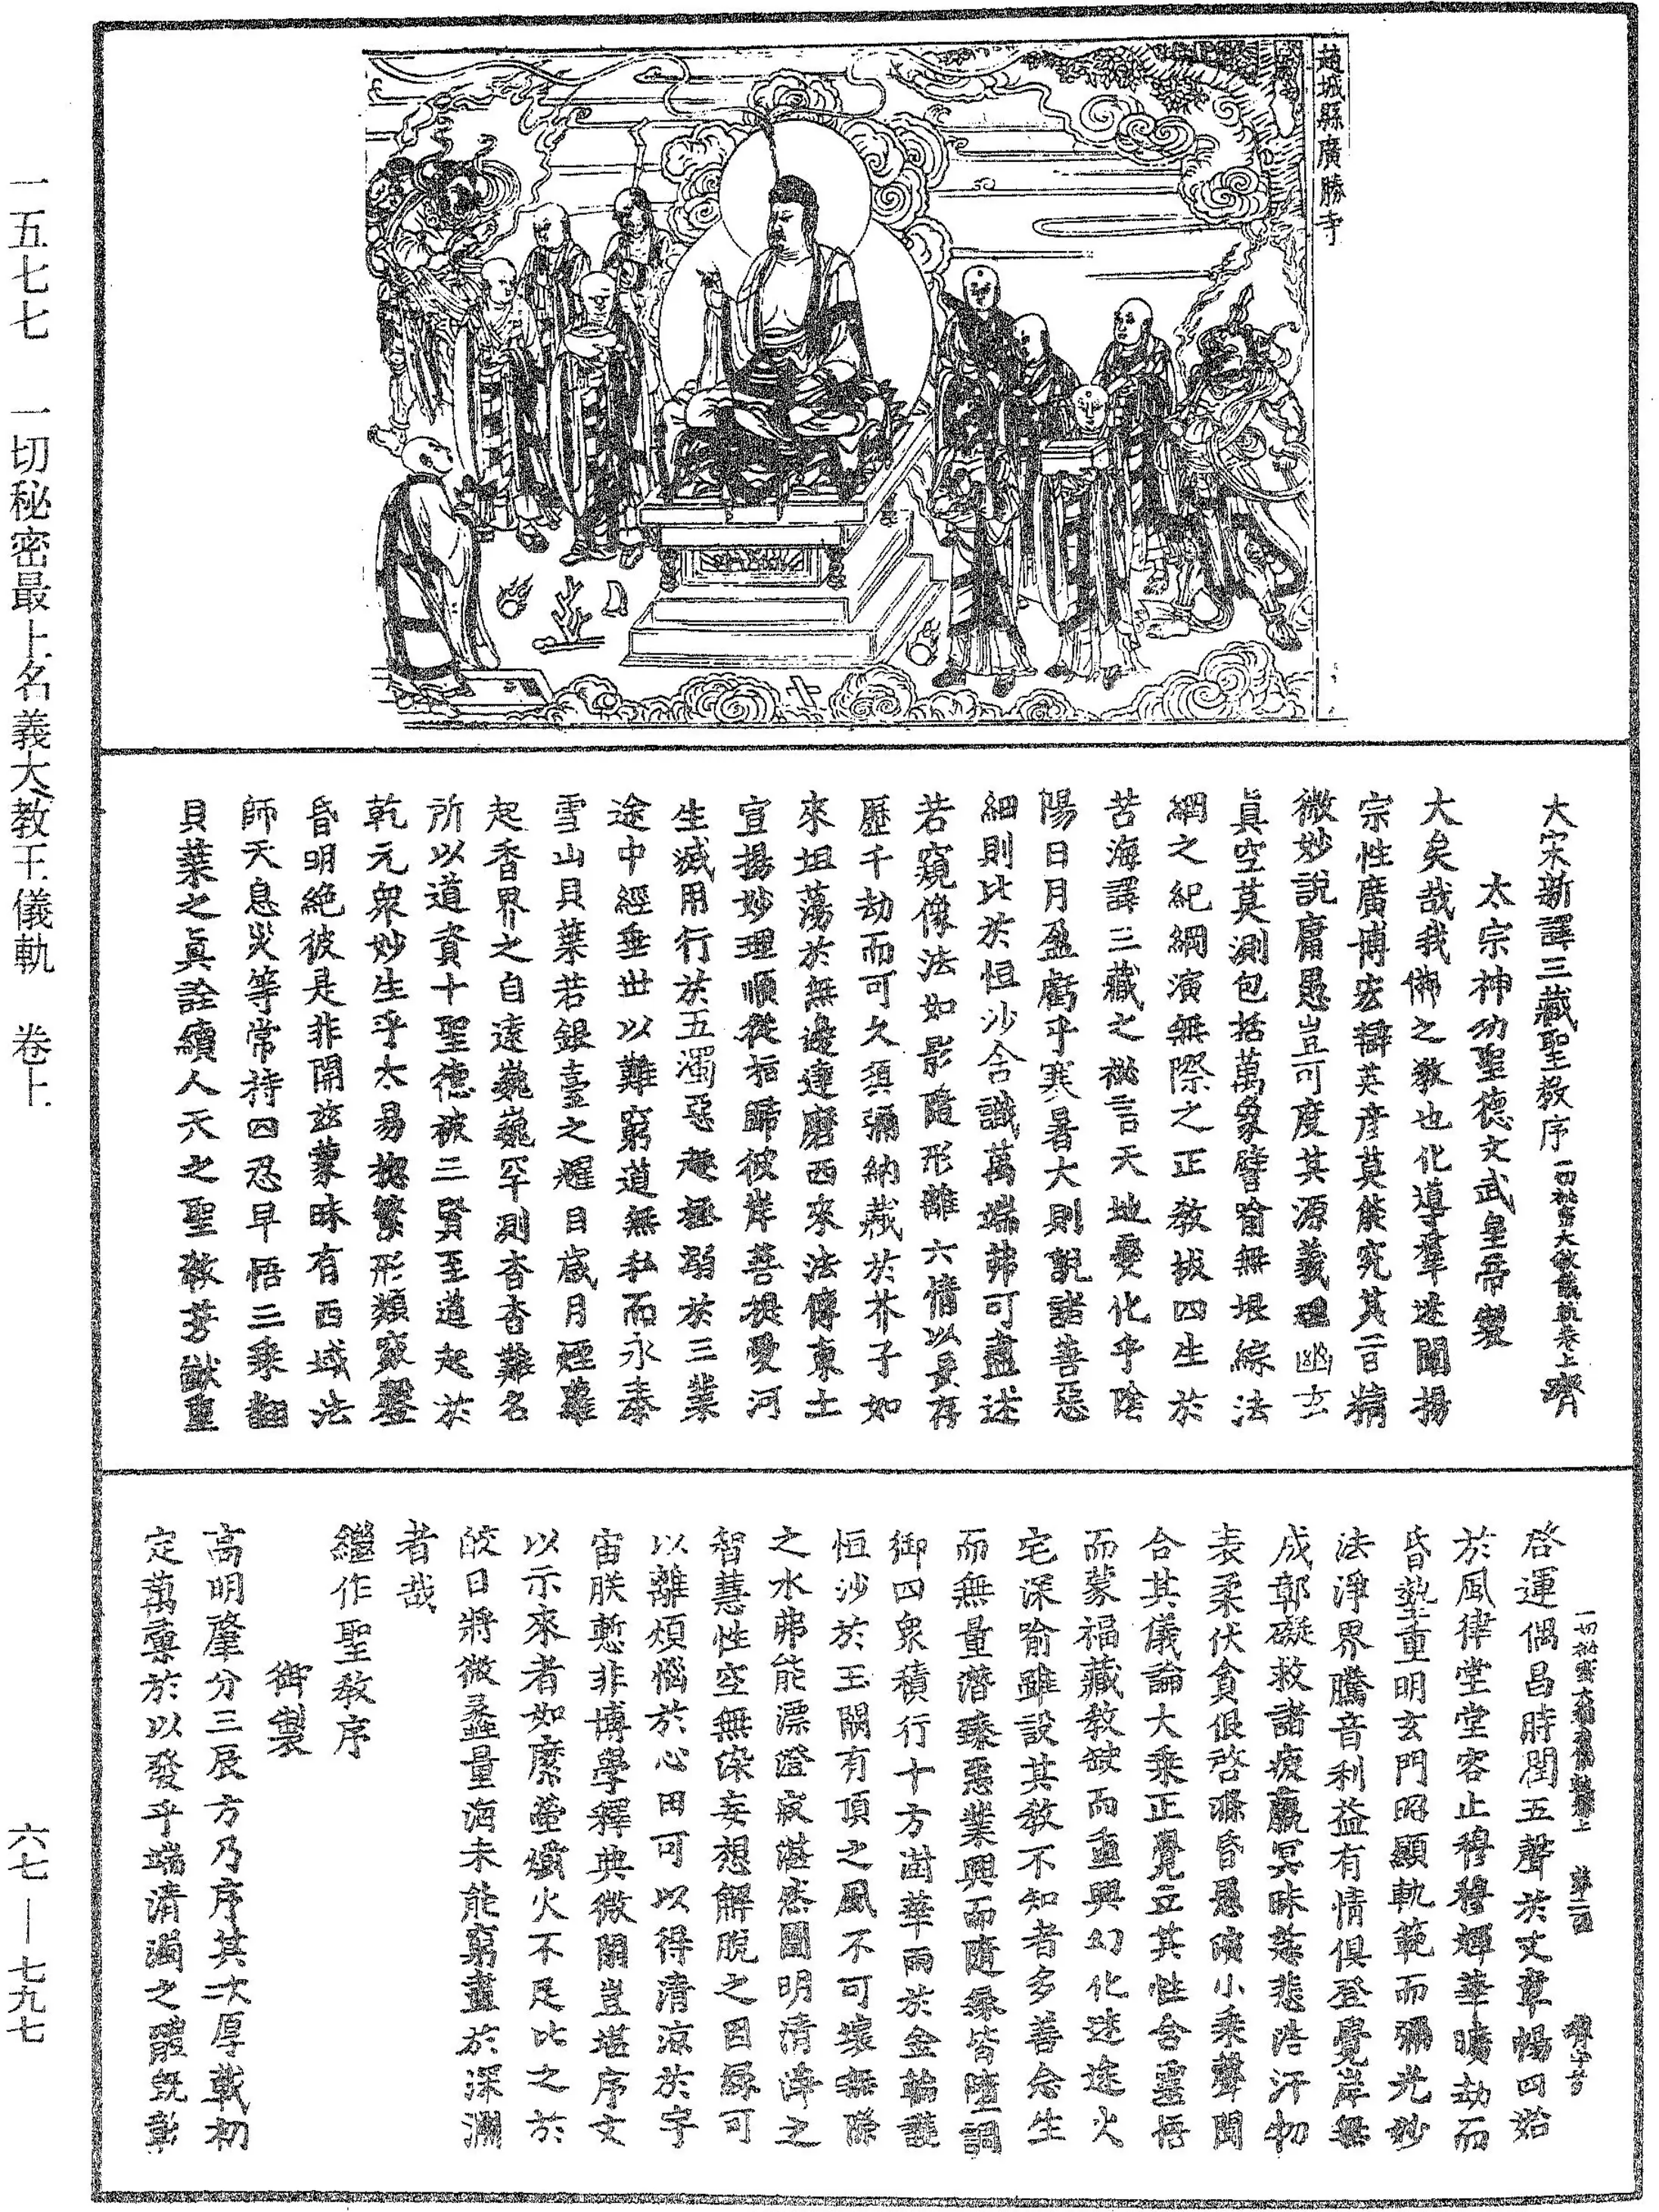 趙城縣廣勝寺
大宋新譯三藏聖教序 一切秘密大教儀軌卷上 濟
太宗神功聖德文武皇帝製
大矣哉我佛之教也化導羣迷闡揚
宗性廣博宏辯英彥莫能究其旨精
微妙說庸愚豈可度其源義理幽玄
眞空莫測包括萬象譬喻無垠綜法
網之紀綱演無際之正教拔四生於
苦海譯三藏之祕言天地變化乎陰
陽日月盈虧乎寒暑大則說諸善惡
細則比於恒沙含識萬端弗可盡述
若窺像法如影隨形離六情以長存
歷千劫而可久須彌納藏於芥子如
來坦蕩於無邊達磨西來法傳東土
宣揚妙理順從指歸彼岸菩提愛河
生滅用行於五濁惡趣拯溺於三業
途中經垂世以難窮道無私而永泰
雪山貝葉若銀臺之耀日歲月煙蘿
起香界之自遠巍巍罕測杳杳難名
所以道資十聖德被三賢至道起於
乾元衆妙生乎太易揔繁形類竅鑿
昏明絕彼是非開茲蒙昧有西域法
師天息災等常持四忍早悟三乘翻
貝葉之眞詮續人天之聖教芳猷重
一切秘密大教儀軌卷上 第二張 濟字号
啓運偶昌時潤五聲於文章暢四始
於風律堂堂容止穆穆輝華曠劫而
昏墊重明玄門昭顯軌範而彌光妙
法淨界騰音利益有情俱登覺岸無
成郭礙救諸疲羸冥昧慈悲浩汗物
表柔伏貪佷啓滌昏愚演小乘聲聞
合其儀論大乘正覺立其性含靈悟
而蒙福藏教缺而重興幻化迷途火
宅深喻雖設其教不知者多善念生
而無量潛臻惡業興而隨緣皆墮調
御四衆積行十方澍華雨於金輪護
恒沙於玉闕有頂之風不可壞無際
之水弗能漂澄寂湛然圓明清淨之
智慧性空無染妄想解脫之因緣可
以離煩惱於心田可以得清涼於宇
宙朕慙非博學釋典微閑豈堪序文
以示來者如縻螢爝火不足比之於
皎日將微蠡量海未能窮盡於深淵
者哉
繼作聖教序
御製
高明肇分三辰方乃序其次厚載初
定萬彙於以發乎端清濁之體旣彰
一五七七　一切秘密最上名義大教王儀軌　卷上
六七—七九七